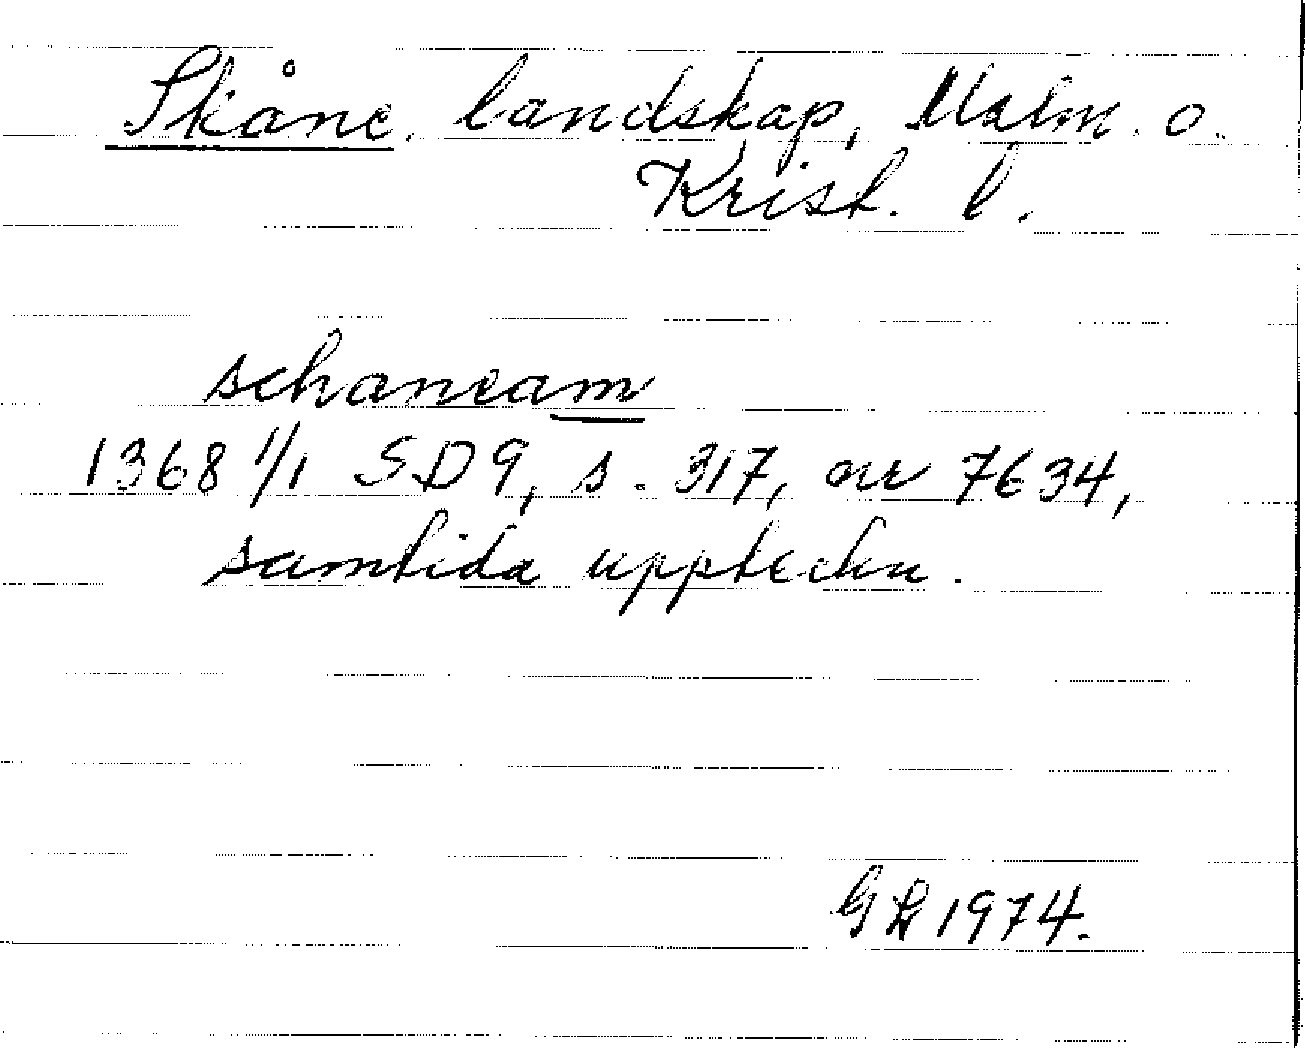 Skåne, landskap, Malm. o.
Krist. l.
schaneam
1368 1/1 SD9, s. 317, nr 7634,
samtida uppteckn.
1974.